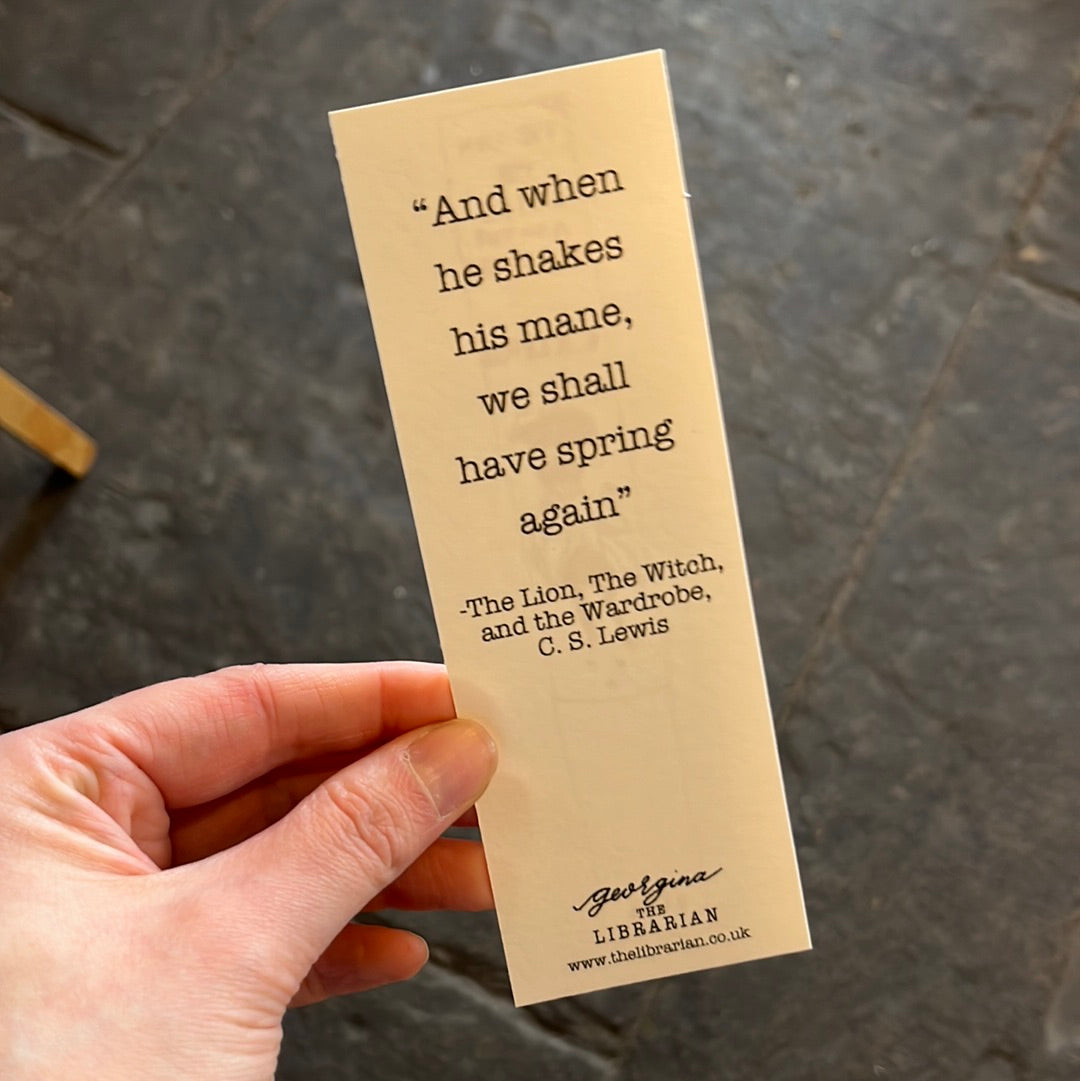 “And when
he shakes
his mane,
we shall
have spring
again”
-The Lion, The Witch,
and the Wardrobe,
C. S. Lewis
georgina
THE
LIBRARIAN
www.thelibrarian.co.uk